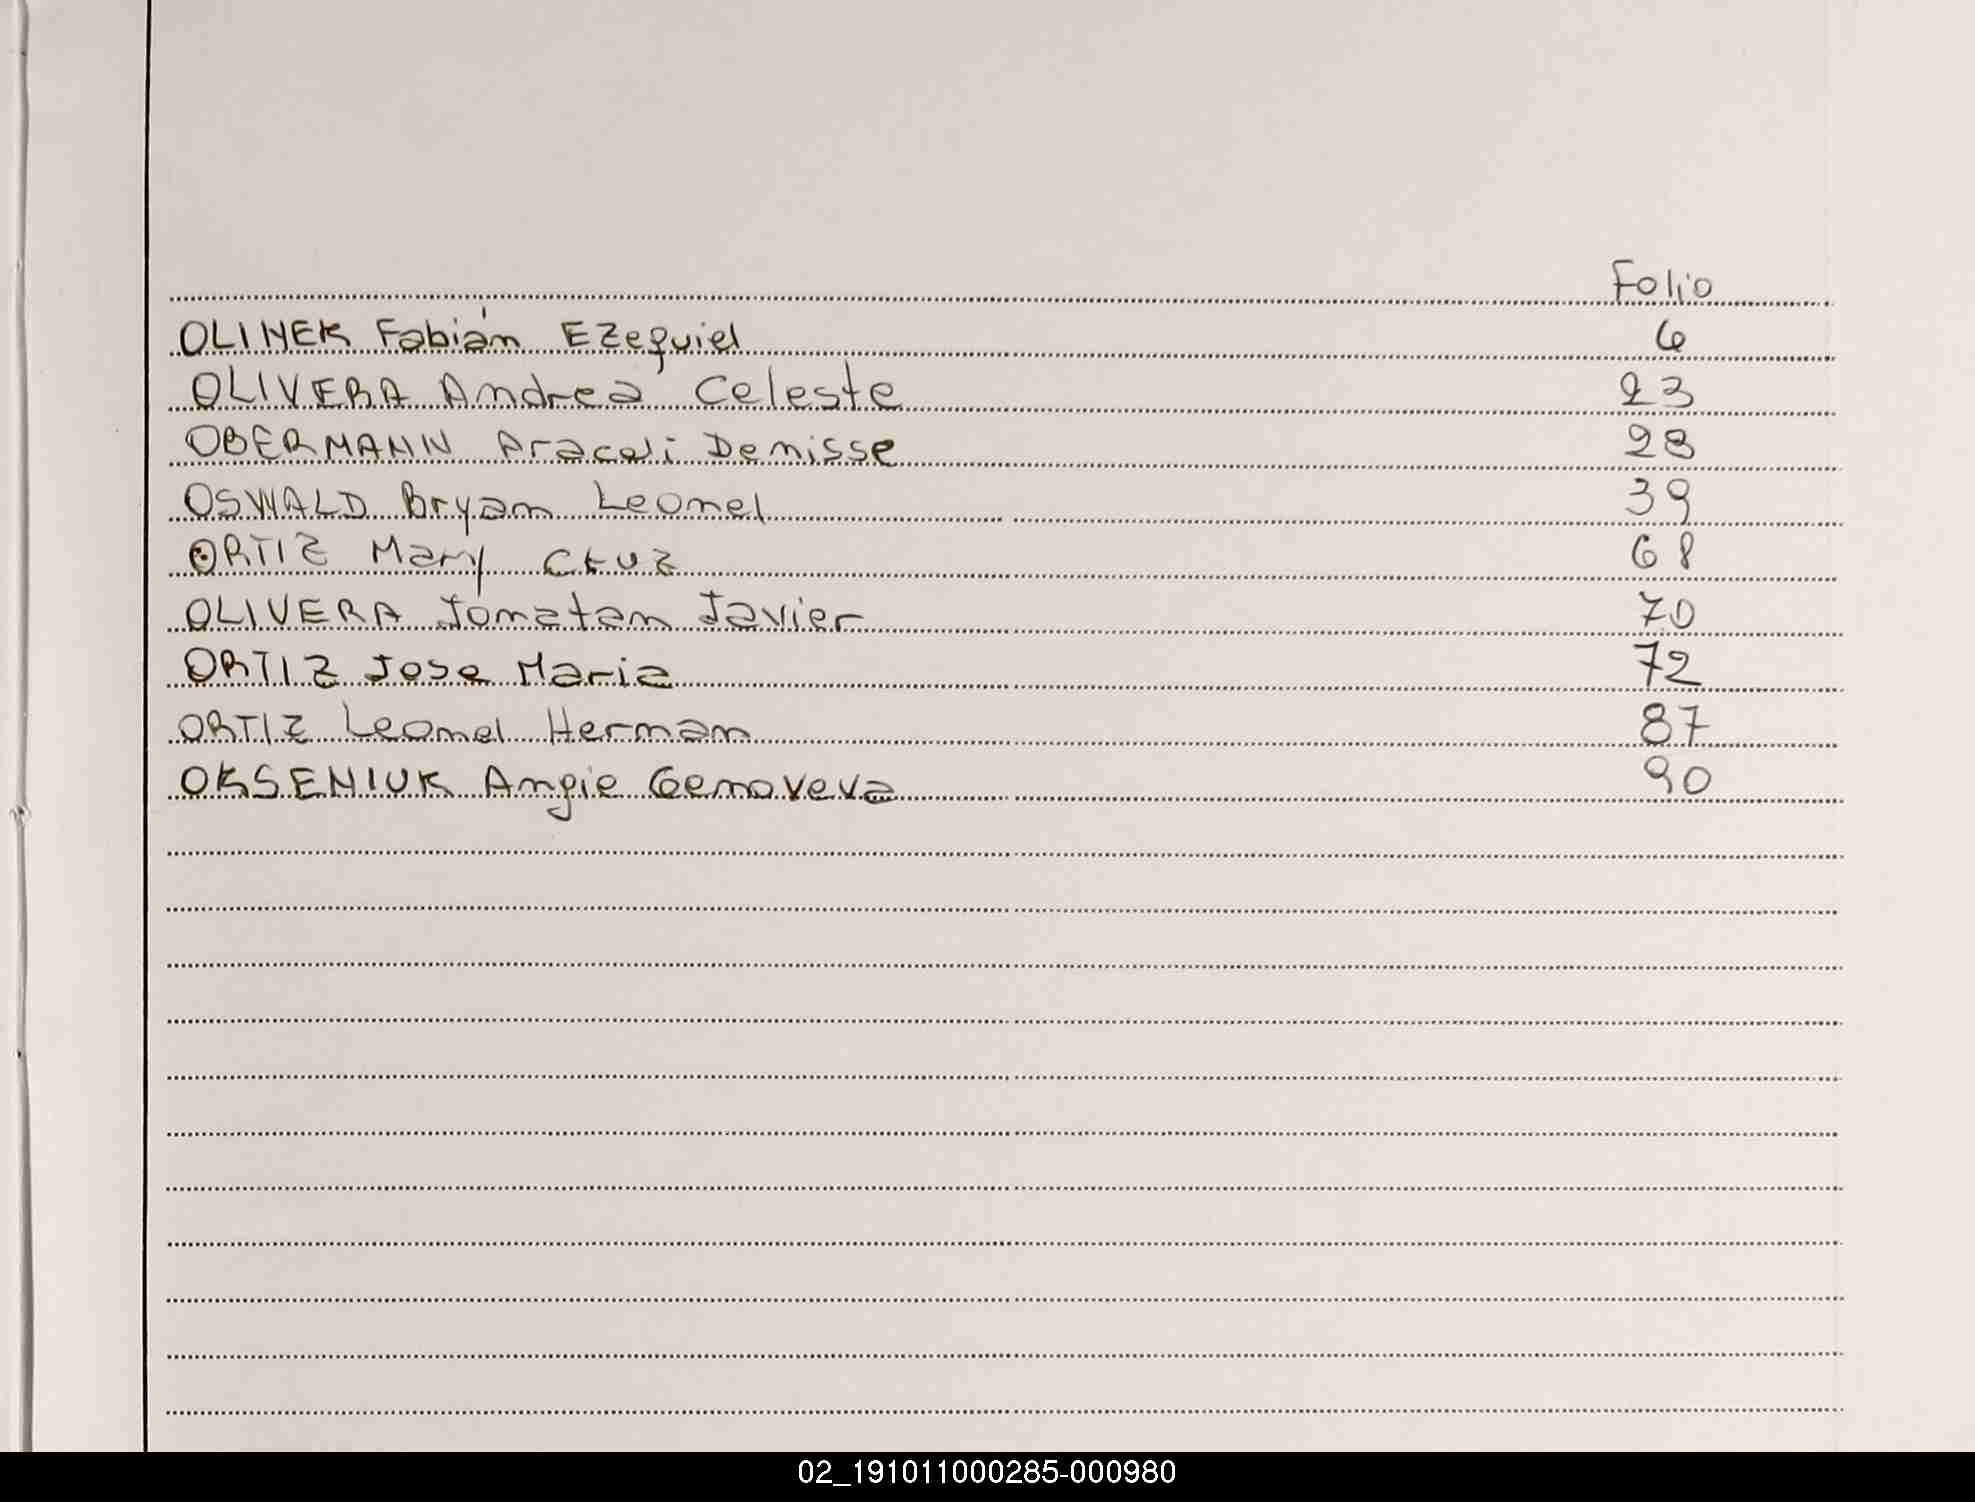 Folio
OLINEK Fabián Ezequiel 6
OLIVERA Andrea Celeste 23
OBERMANN Araceli Denisse 28
OSWALD Bryan Leonel 39
ORTIZ Mary Cruz 68
OLIVERA Jonatan Javier 70
ORTIZ Jose Maria 72
ORTIZ Leonel Hernan 87
OKSENIUK Angie Genoveva 90
02_191011000285-000980